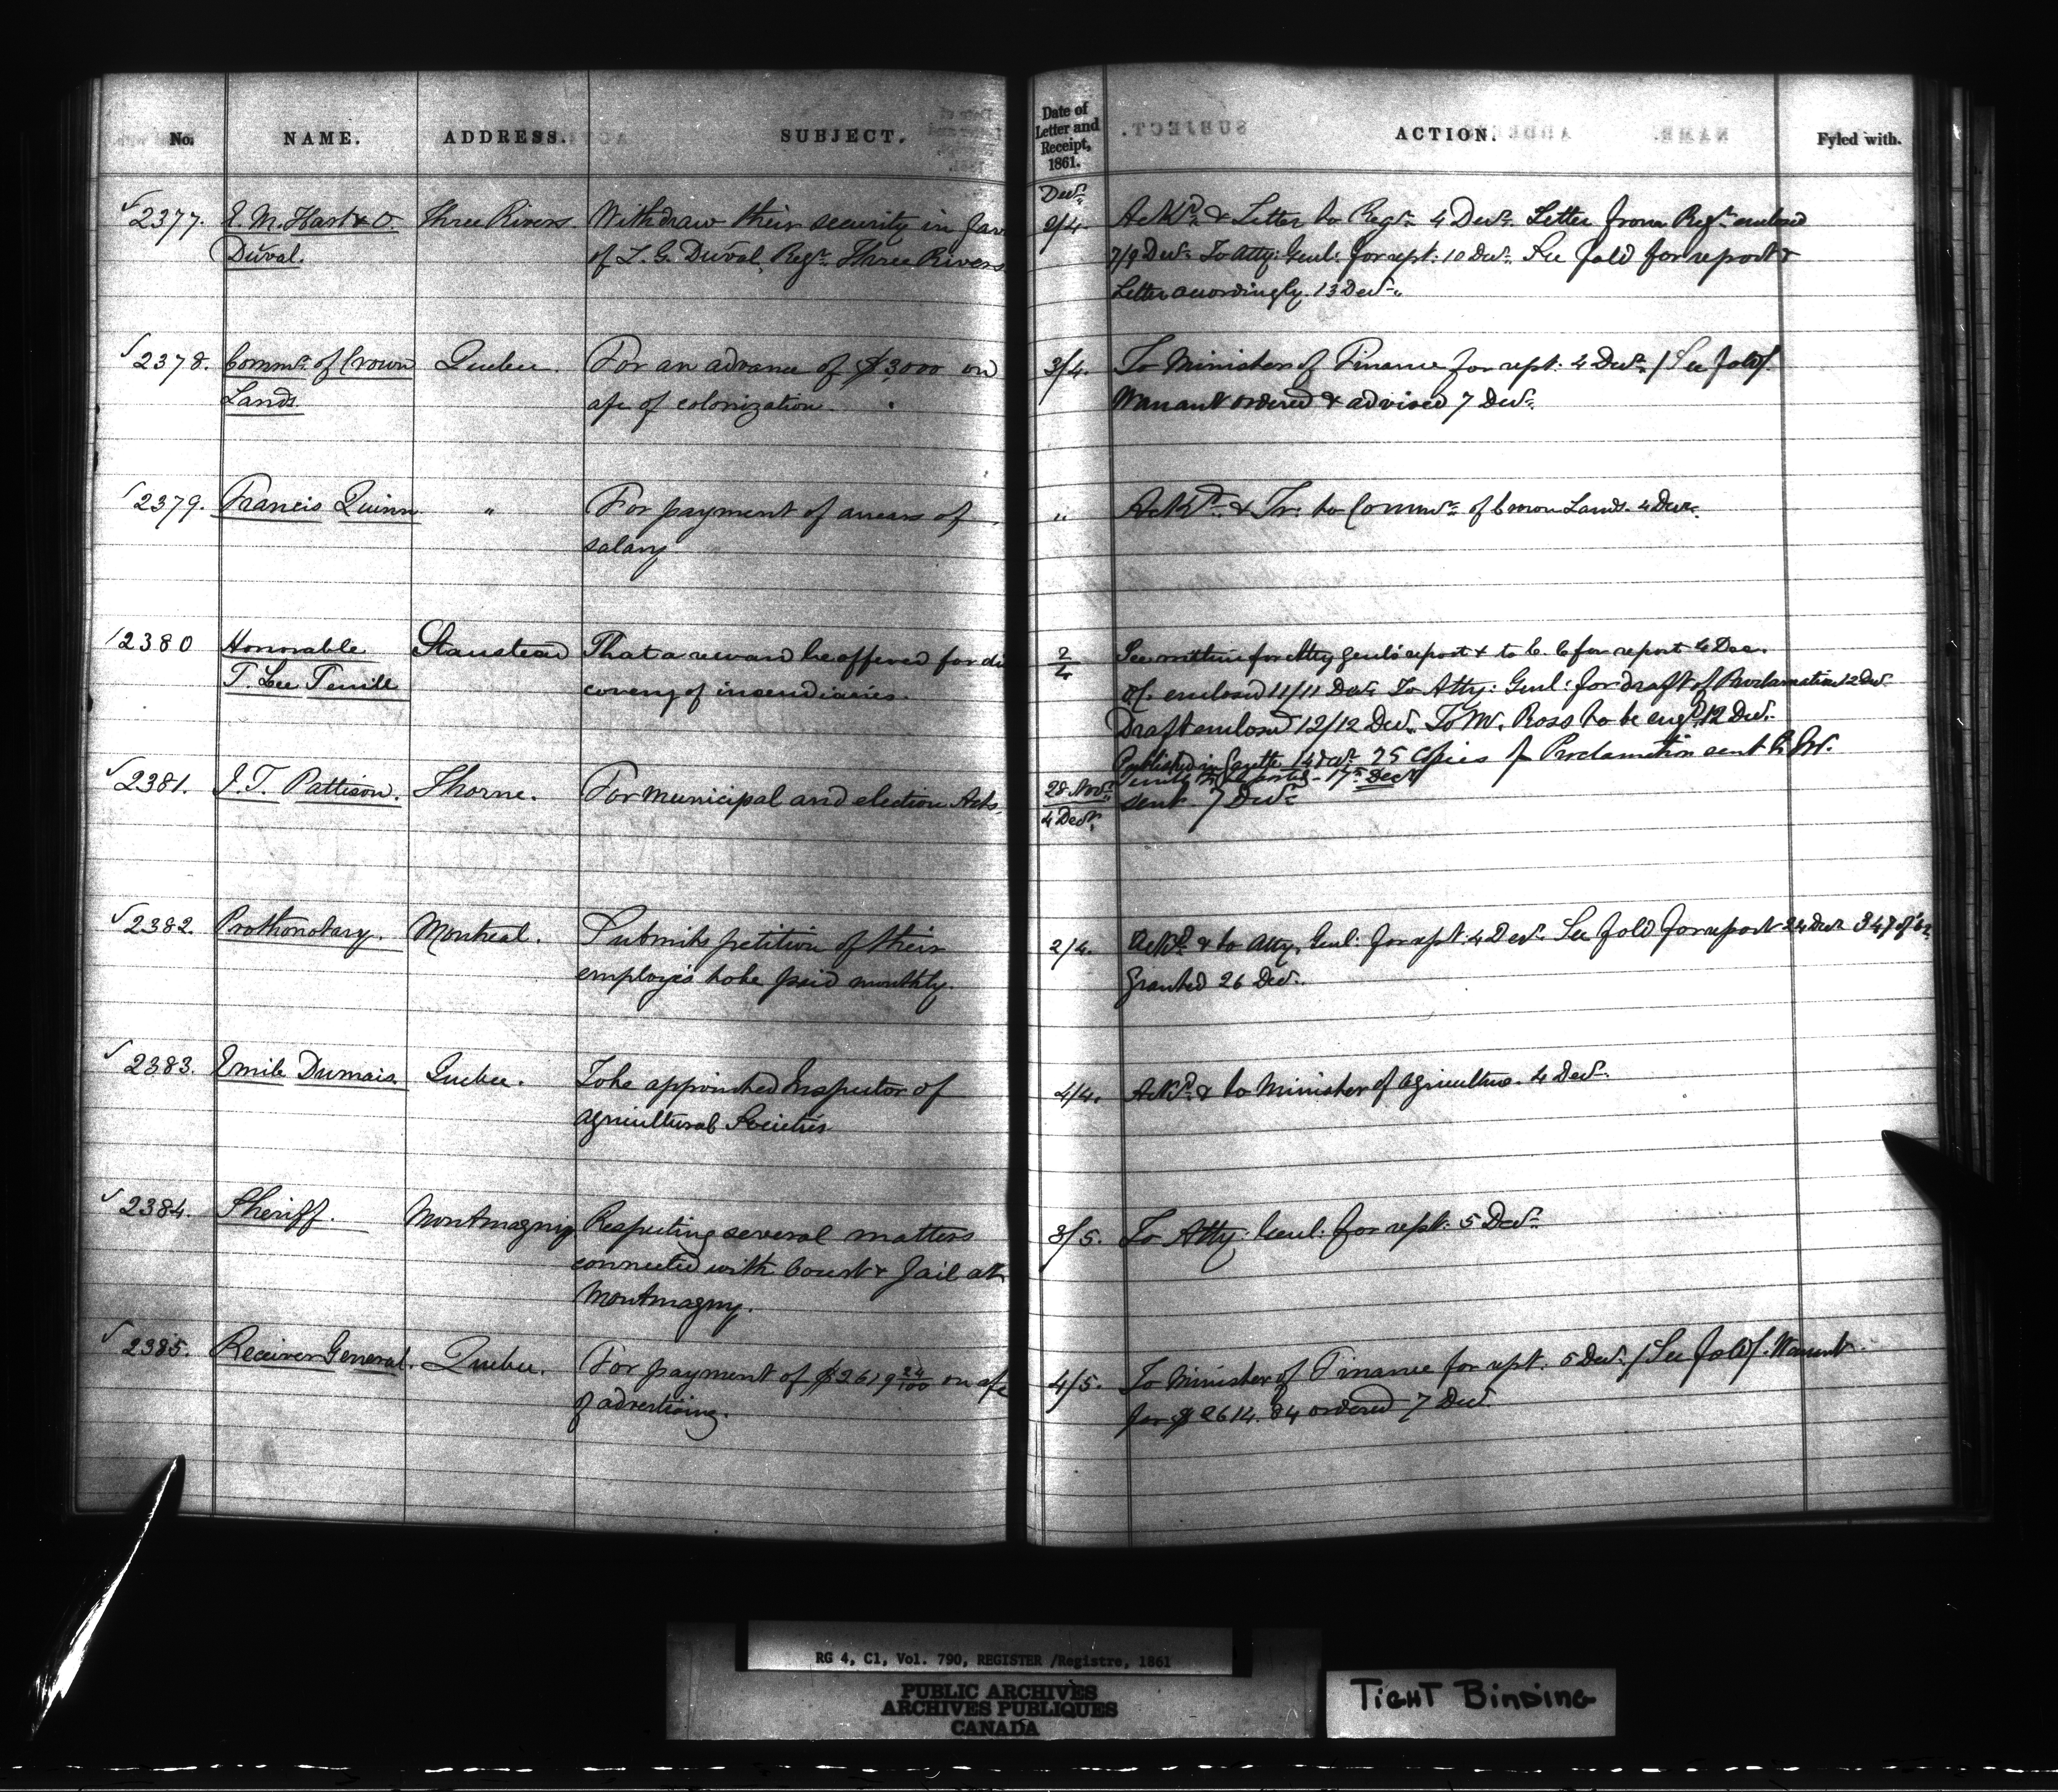 No. NAME. ADDRESS. SUBJECT. Date of Letter and Receipt, 1861. ACTION. Fyled with.
Decr.
2377. E. M. Hart & O. Three Rivers. Withdraw their security in fav 2/4. Ackd. & Letter to Regr. 4 Decr. Letter from Regr. enclosed
Duval. of L. G. Duval, Regr. Three Rivers 7/9 Decr. To Atty: Genl: for rept: 10 Decr. See fold for report &
Letter accordingly. 13 Decr.
2378. Commr. of Crown Quebec. For an advance of $3000 on 3/4. To Minister of Finance for rept: 4 Decr. / See fold/.
Lands. a/c of colonization Warrant ordered & advised 7 Decr.
2379. Francis Quinn " For payment of arrears of " Ackd. & Tr: to Commr. of Crown Lands. 4 Decr.
salary
2380 Honorable Stanstead That a reward be offered for dis 2/4 See within for Atty Genl's report & to C. C. for report 4 Dec.
T. Lee Terrill covery of incendiaries. O/C. enclosed 11/11 Decr. To Atty: Genl: for draft of Proclamation 12 Decr.
Draft enclosed 12/12 Decr. To W. Ross to be engd. 12 Decr.
Published in Gazette 14 Decr. 25 Copies of Proclamation sent to Mr.
17th Decr.
2381. J. T. Pattison. Thorne. For municipal and election Acts. 28 Novr. 4 Decr. sent 7 Decr.
2382. Prothonotary. Montreal. Submits petition of their 2/4. Ackd. & to Atty. Genl: for rept: 4 Decr. See fold for report 24 Decr. 347 of '62
employés to be paid monthly. Granted 26 Decr.
2383. Emile Dumais. Quebec. To be appointed Inspector of 4/4. Ackd. & to Minister of Agriculture. 4 Decr.
Agricultural Societies
2384. Sheriff. Montmagny Respecting several matters 3/5. To Atty: Genl: for rept: 5 Decr.
connected with Court & Jail at
Montmagny.
2385. Receiver General. Quebec. For payment of $2619 24/100 on a/c 4/5. To Minister of Finance for rept: 5 Decr. / See fold/. Warrant
of advertising. for $2614.84 ordered 7 Decr
RG 4, C1, Vol. 790, REGISTER /Registre, 1861
PUBLIC ARCHIVES
ARCHIVES PUBLIQUES
CANADA
TIGHT BINDING